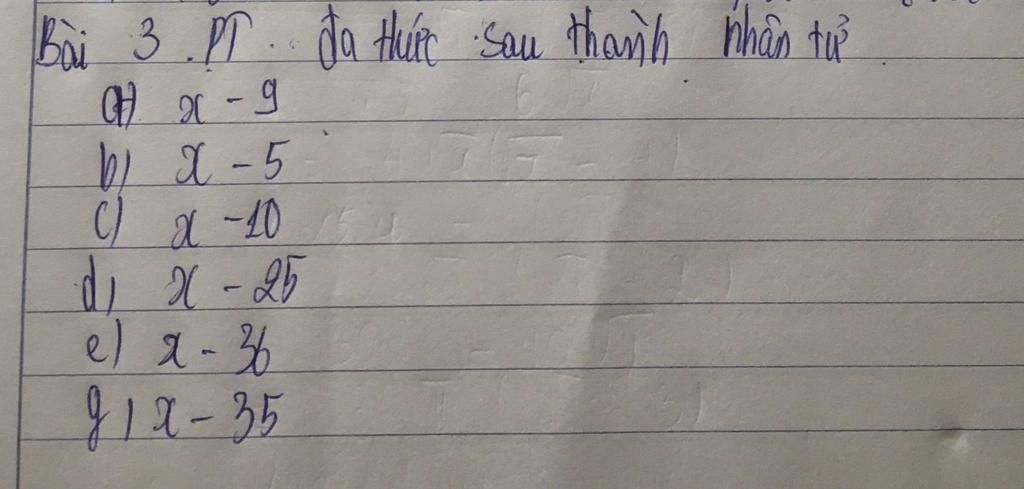 Bài 3. PT đa thức sau thành nhân tử
a) x - 9
b) x - 5
c) x - 10
d) x - 25
e) x - 36
g) x - 35